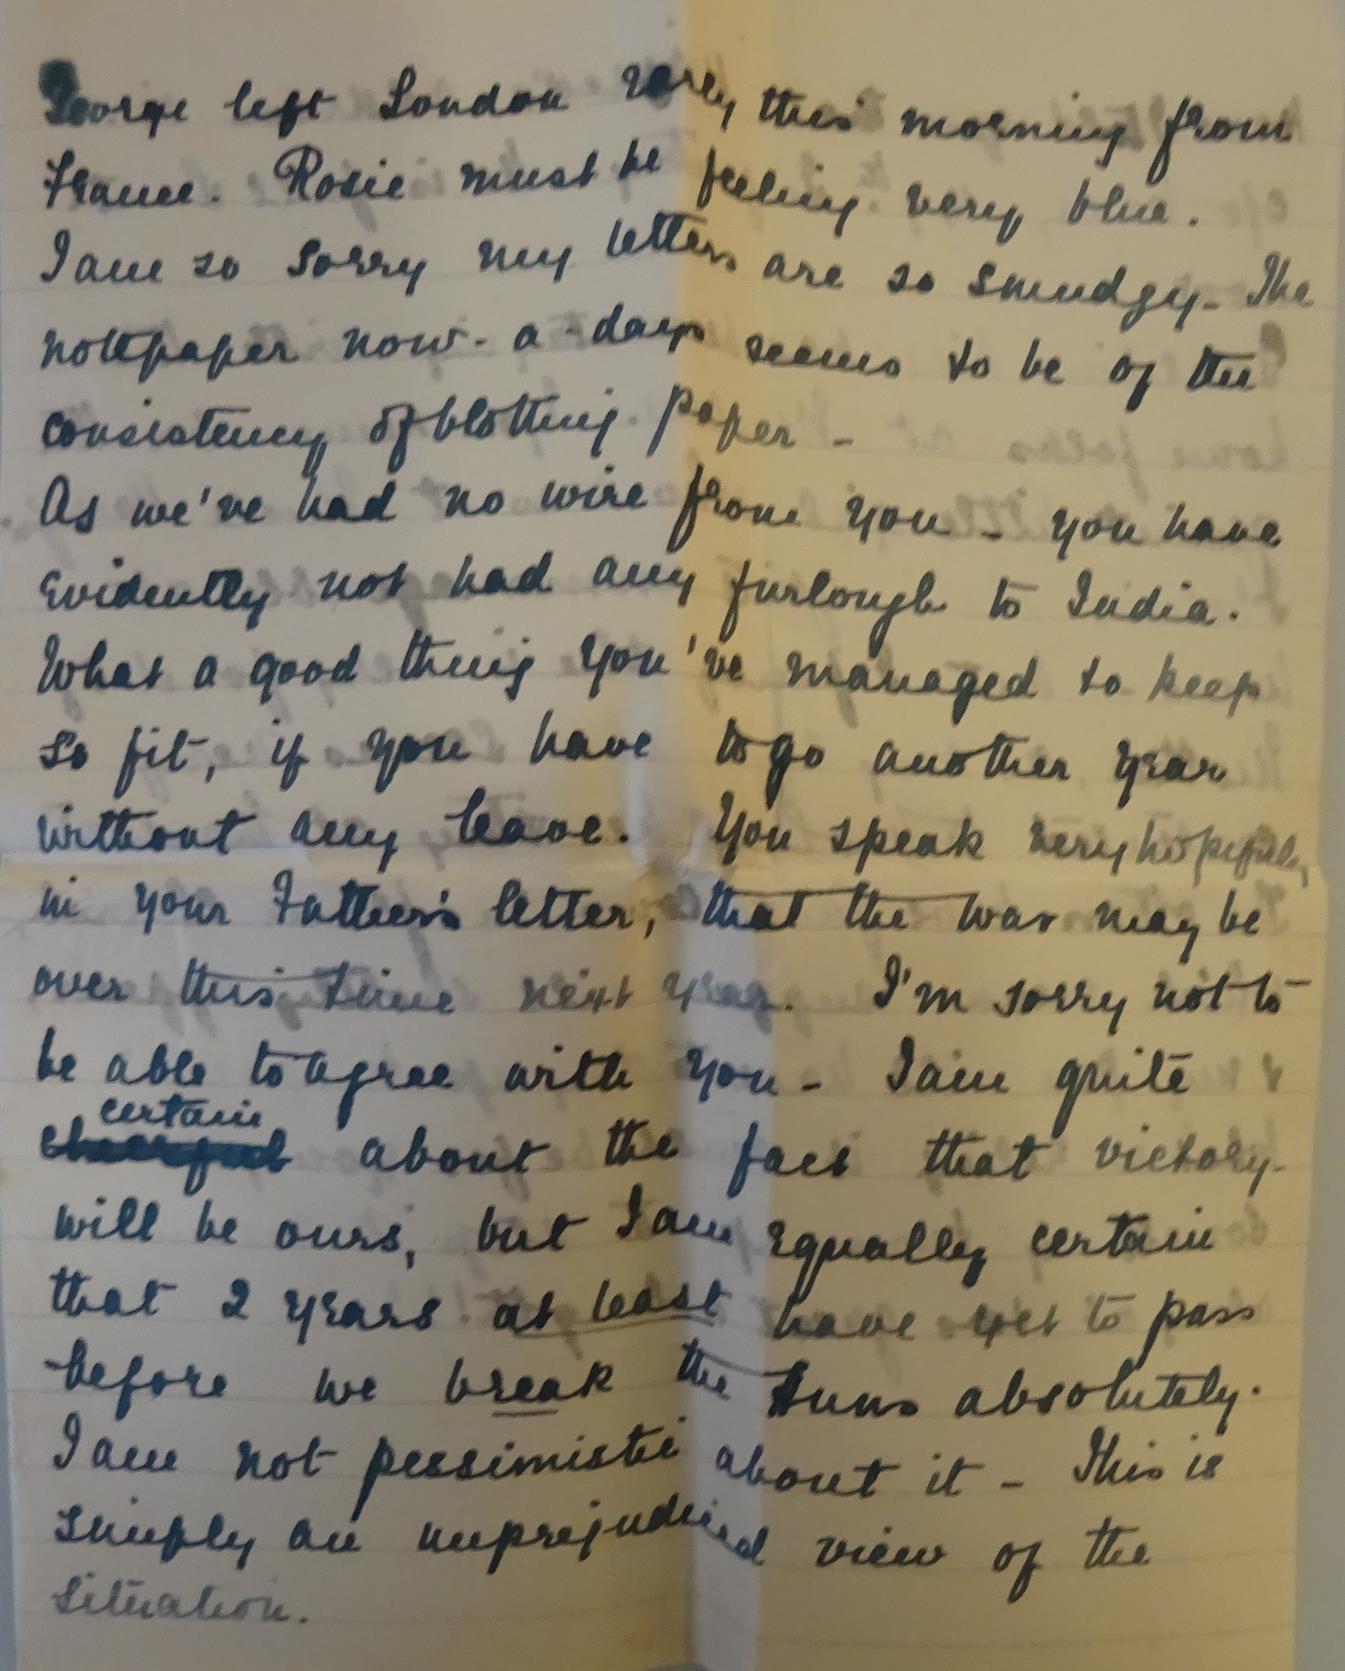 George left London early this morning from
France. Rosie must be feeling very blue.
I am so sorry my letters are so smudgy - The
notepaper now-a-days seems to be of the
consistency of blotting paper -
As we've had no wire from you - you have
evidently not had any furlough to India.
What a good thing you've managed to keep
so fit, if you have to go another year
without any leave. You speak very hopefully
in your Father's letter, that the war may be
over this time next year. I'm sorry not to
be able to agree with you - I am quite
certain
cheerful about the fact that victory
will be ours, but I am equally certain
that 2 years at least have yet to pass
before we break the Huns absolutely.
I am not pessimistic about it - This is
simply an unprejudiced view of the
situation.